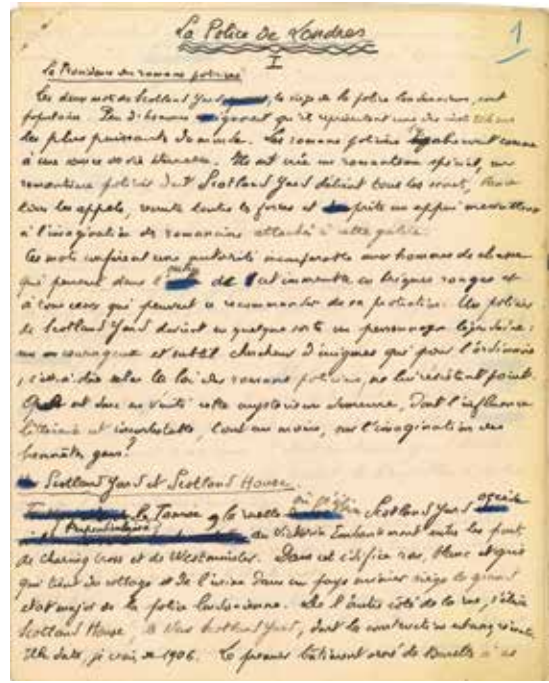 La Police de Londres
1
I
La Providence des romans policiers
Ces deux mots de Scotland Yard, le siège de la police londonienne, sont
populaires. Peu d'hommes ignorent qu'ils représentent une des
les plus puissantes du monde. Les romans policiers s'y abreuvent comme
à une source sacrée éternelle. Ils ont créé un romantisme spécial, un
romantisme policier dont Scotland Yard détient tous les secrets,
tous les appels, toutes les forces et prête un appui merveilleux
à l'imagination des romanciers attachés à cette
Ces mots confèrent une autorité incomparable aux hommes de
qui peuvent dans l' de cet immeuble en briques rouges et
à tous ceux qui peuvent se recommander de sa protection. Un policier
de Scotland Yard devient en quelque sorte un personnage légendaire :
un courageux et subtil chercheur d'énigmes qui pour l'ordinaire
, c'est à dire selon la loi des romans policiers, ne lui résistent point.
est donc en vérité cette mystérieuse demeure, dont l'influence
littéraire est incontestable, tout au moins, sur l'imagination des
honnêtes gens?
Scotland Yard et Scotland House
la Tamise la ruelle Scotland Yard
Perpendiculaire du Victoria Embankment entre les ponts
de Charing Cross et de Westminster. Dans cet édifice rose, blanc et gris
qui tient du cottage et de l'usine dans un pays minier siège le grand
état major de la police londonienne. De l'autre côté de la rue, s'élève
Scotland House, le New Scotland Yard, dont la construction est assez récente
Elle date, je crois, de 1906. Le premier bâtiment